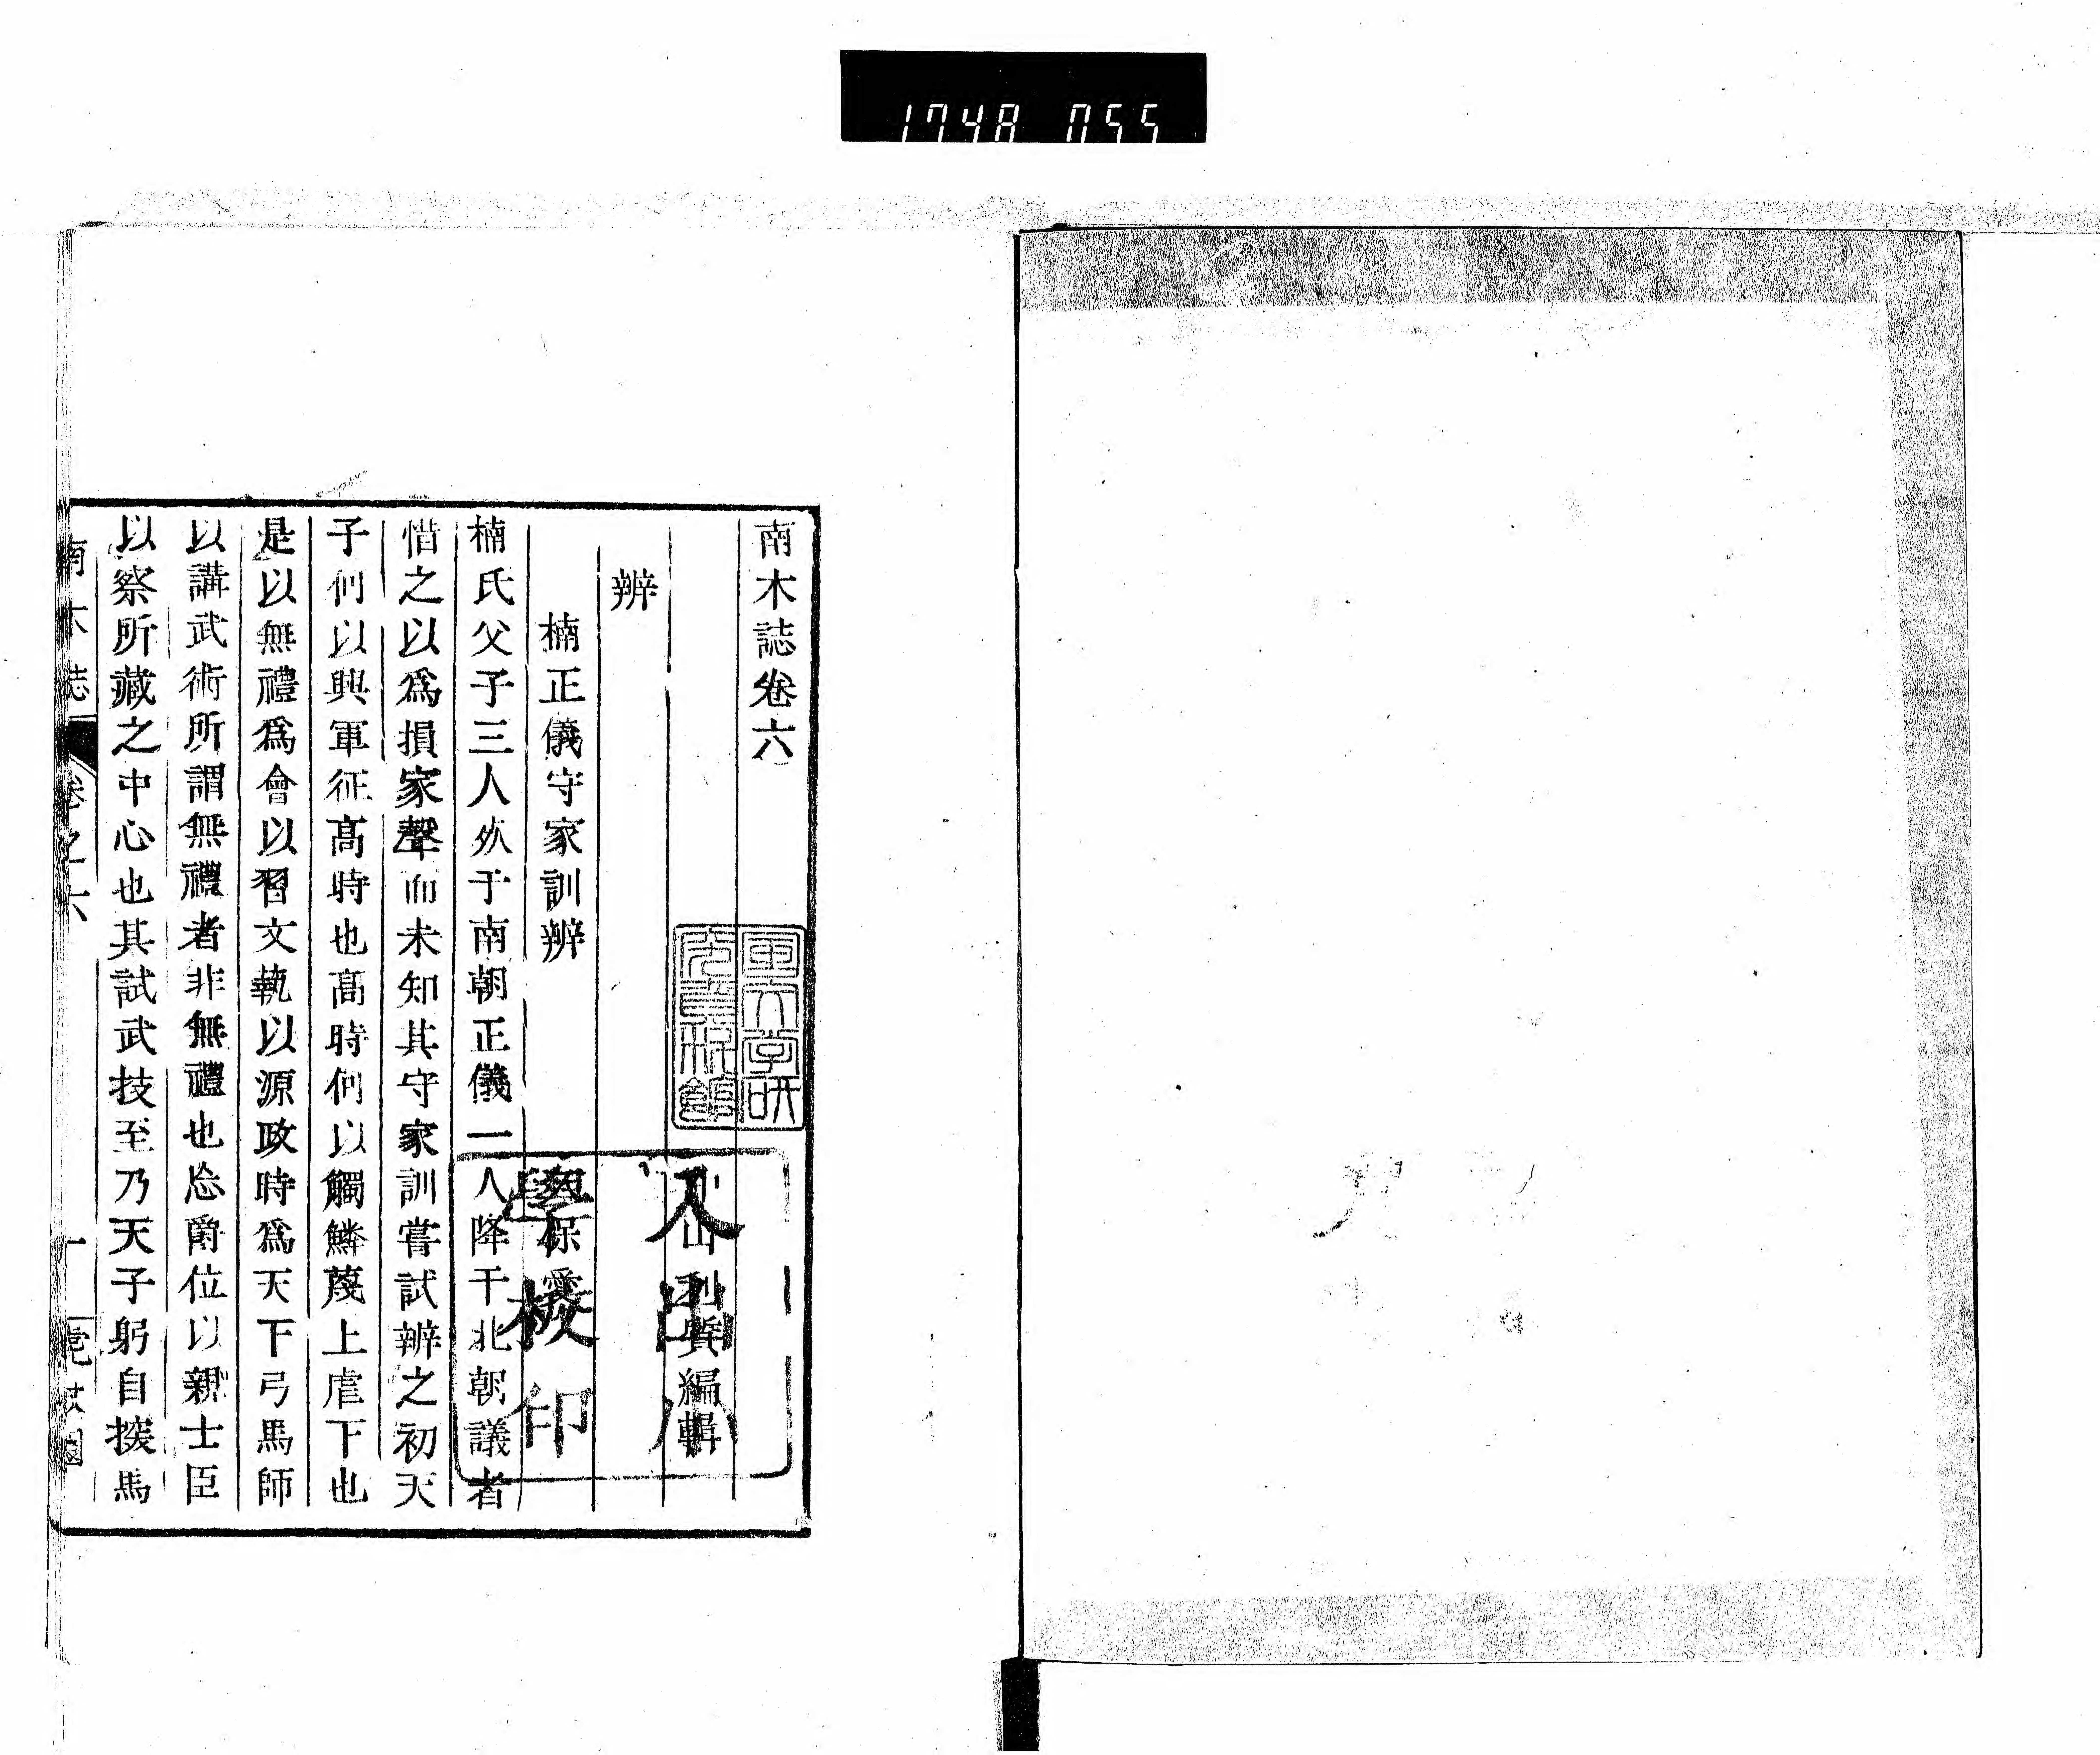 1748 055
南木誌卷六
山利質編輯
辨
楠正儀守家訓辨
保
楠氏父子三人死于南朝正儀一人降于北朝議者
惜之以爲損家聲而未知其守家訓嘗試辨之初天
子何以興軍征髙時也髙時何以觸鱗蔑上虐下也
是以無禮爲會以習文執以源政時爲天下弓馬師
以講武術所謂無禮者非無禮也忘爵位以親士臣
以察所藏之中心也其試武技至乃天子躬自㨃馬
南木誌 卷之六 一
國文学研
究資料館
八
學校印